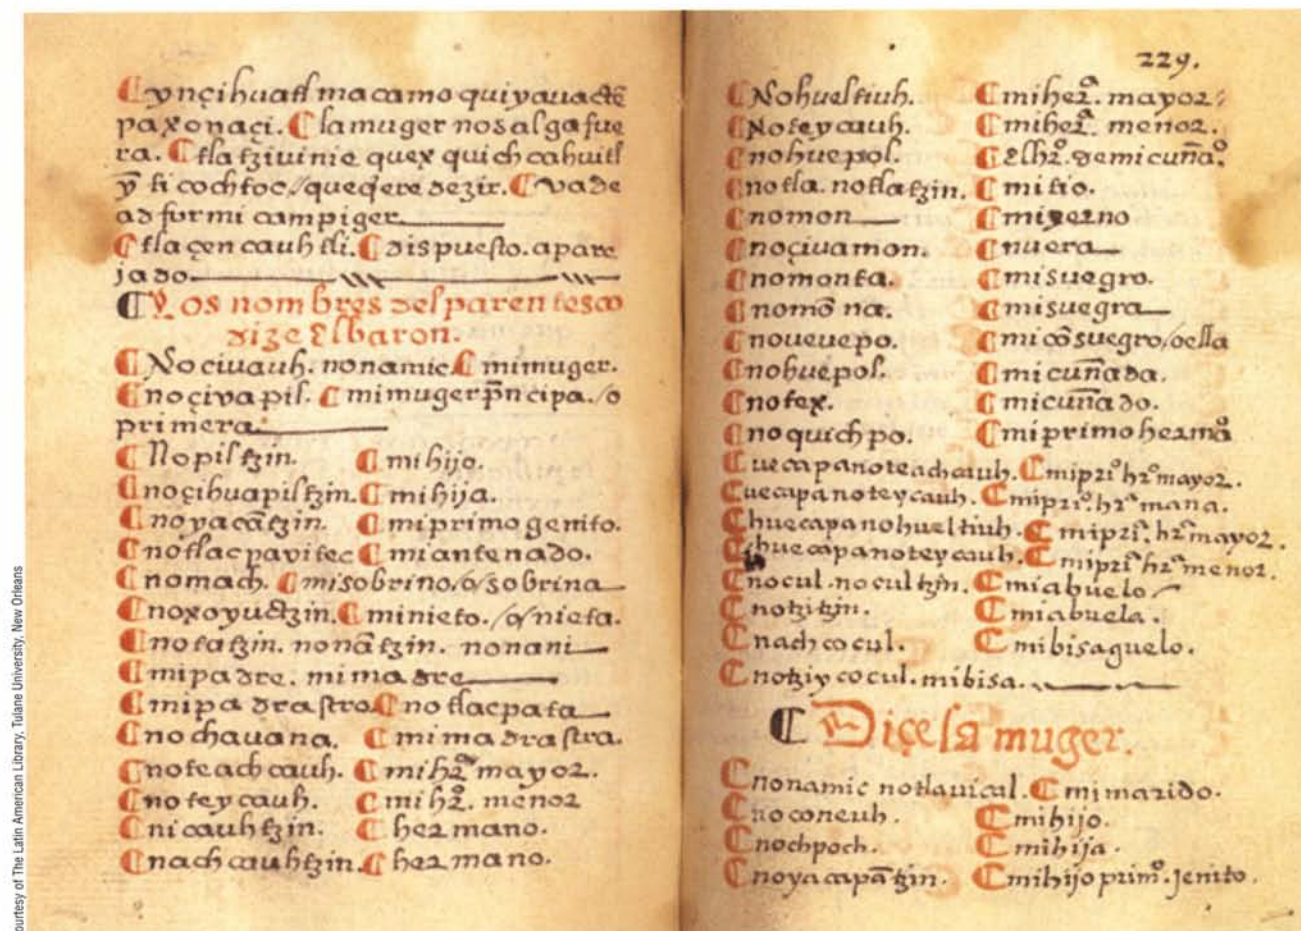 courtesy of The Latin American Library, Tulane University, New Orleans
ynçihuatl macamo quiyauactē
paxonaçi. la muger no salga fue
ra. tlatziuinie quex quich cahuitl
ỹ ti cochtoc./ que q̄ere dezir. vade
ad formicam piger
tlaçencauhtli. dispuesto. apare
jado
Los nombres del parentesco
dize El baron.
Nociuauh. nonamic mi muger.
noçivapil. mi muger p̄ncipa./o
primera
Nopiltzin. mi hijo.
noçihuapiltzin. mi hija.
noyacātzin. mi primo genito.
notlacpavitec mi antenado.
nomach. mi sobrino/o/ sobrina
noxoyuctzin. mi nieto./o/ nieta.
notatzin. nonātzin. nonani
mi padre. mi madre
mi padrastro notlacpata
nochauana. mi madrastra.
noteachcauh. mi hr̃o mayor.
noteycauh. mi hr̃o. menor
nicauhtzin. hermano.
nachcauhtzin. hermano.
229.
Nohueltiuh. mi herª. mayor
Noteycauh. mi herª. menor.
nohuepol. El hrº. de mi cuñaº.
notla. notlatzin. mi tio.
nomon mi yerno
noçiuamon. nuera
nomonta. mi suegro.
nomōna. mi suegra
noueuepo. mi cōsuegro/o ella
nohuepol. mi cuñada.
notex. mi cuñado.
noquichpo. mi primo hermº
uecapanoteachcauh. mi priº hrº mayor.
uecapanoteycauh. mi priº. hrª mana.
huecapanohueltiuh. mi priª. hrª mayor.
huecapanoteycauh. mi priª hrª menor.
nocul. nocultzin. mi abuelo
notzitzin. mi abuela.
nachcocul. mi bisaguelo.
notziycocul. mi bisa.
Diçe la muger.
nonamic notlauical. mi marido.
noconeuh. mi hijo.
nochpoch. mi hija.
noyacapātzin. mi hijo primº. jenito.